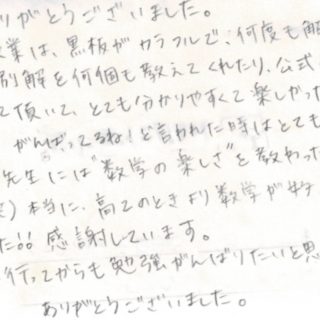 りがとうございました。
業は、黒板がカラフルで、何度も解
別解を何個も教えてくれたり、公式
て頂いて、とても分かりやすくて楽しかっ
がんばってるね!と言われた時はとても
先生には"数学の楽しさ"を教わった
本当に、高1のときより数学が好
た!! 感謝しています。
行ってからも勉強がんばりたいと思
ありがとうございました。